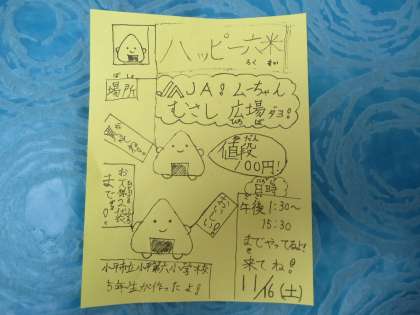 ハッピー六米
ろく まい
ばしょ
場所
JA！ムーちゃん
むさし 広場ダヨ！
ひろ ば
値段
100円！
日時
午後1:30〜
15:30
までやってるよ！
来てね！
11/16(土)
小平市立小平第六小学校
5年生が作ったよ！